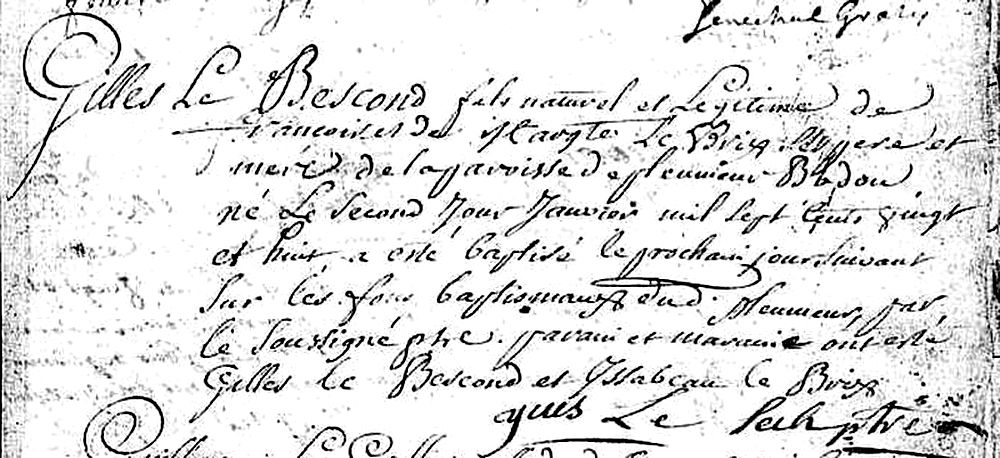 Senechal
Gilles Le Bescond fils naturel et Legitime de
francois et de Margte Le Brix ses pere et
mere de la paroisse de pleumeur Bodou
né Le Second Jour Janvier mil sept cents vingt
et huit a esté baptisé le prochain jour suivant
Sur les fons baptismaux dud. pleumeur, par
le Soussigné ptre. parain et maraine ont esté
Gilles le Bescond et Issabeau le Brix
yves Le ptre
Le